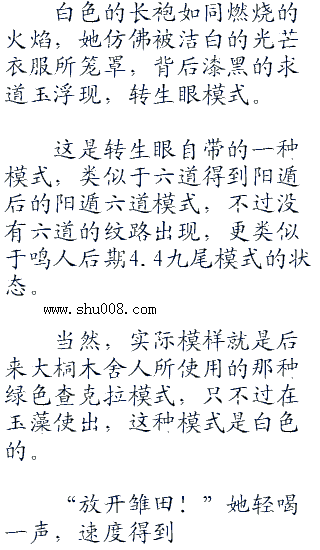 白色的长袍如同燃烧的
火焰，她仿佛被洁白的光芒
衣服所笼罩，背后漆黑的求
道玉浮现，转生眼模式。
这是转生眼自带的一种
模式，类似于六道得到阳遁
后的阳遁六道模式，不过没
有六道的纹路出现，更类似
于鸣人后期4.4九尾模式的状
态。
www.shu008.com
当然，实际模样就是后
来大桐木舍人所使用的那种
绿色查克拉模式，只不过在
玉藻使出，这种模式是白色
的。
“放开雏田！”她轻喝
一声，速度得到